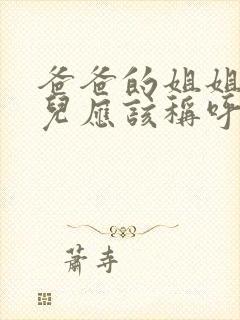 爸爸的姐姐
兒應該稱呼
蕭寺